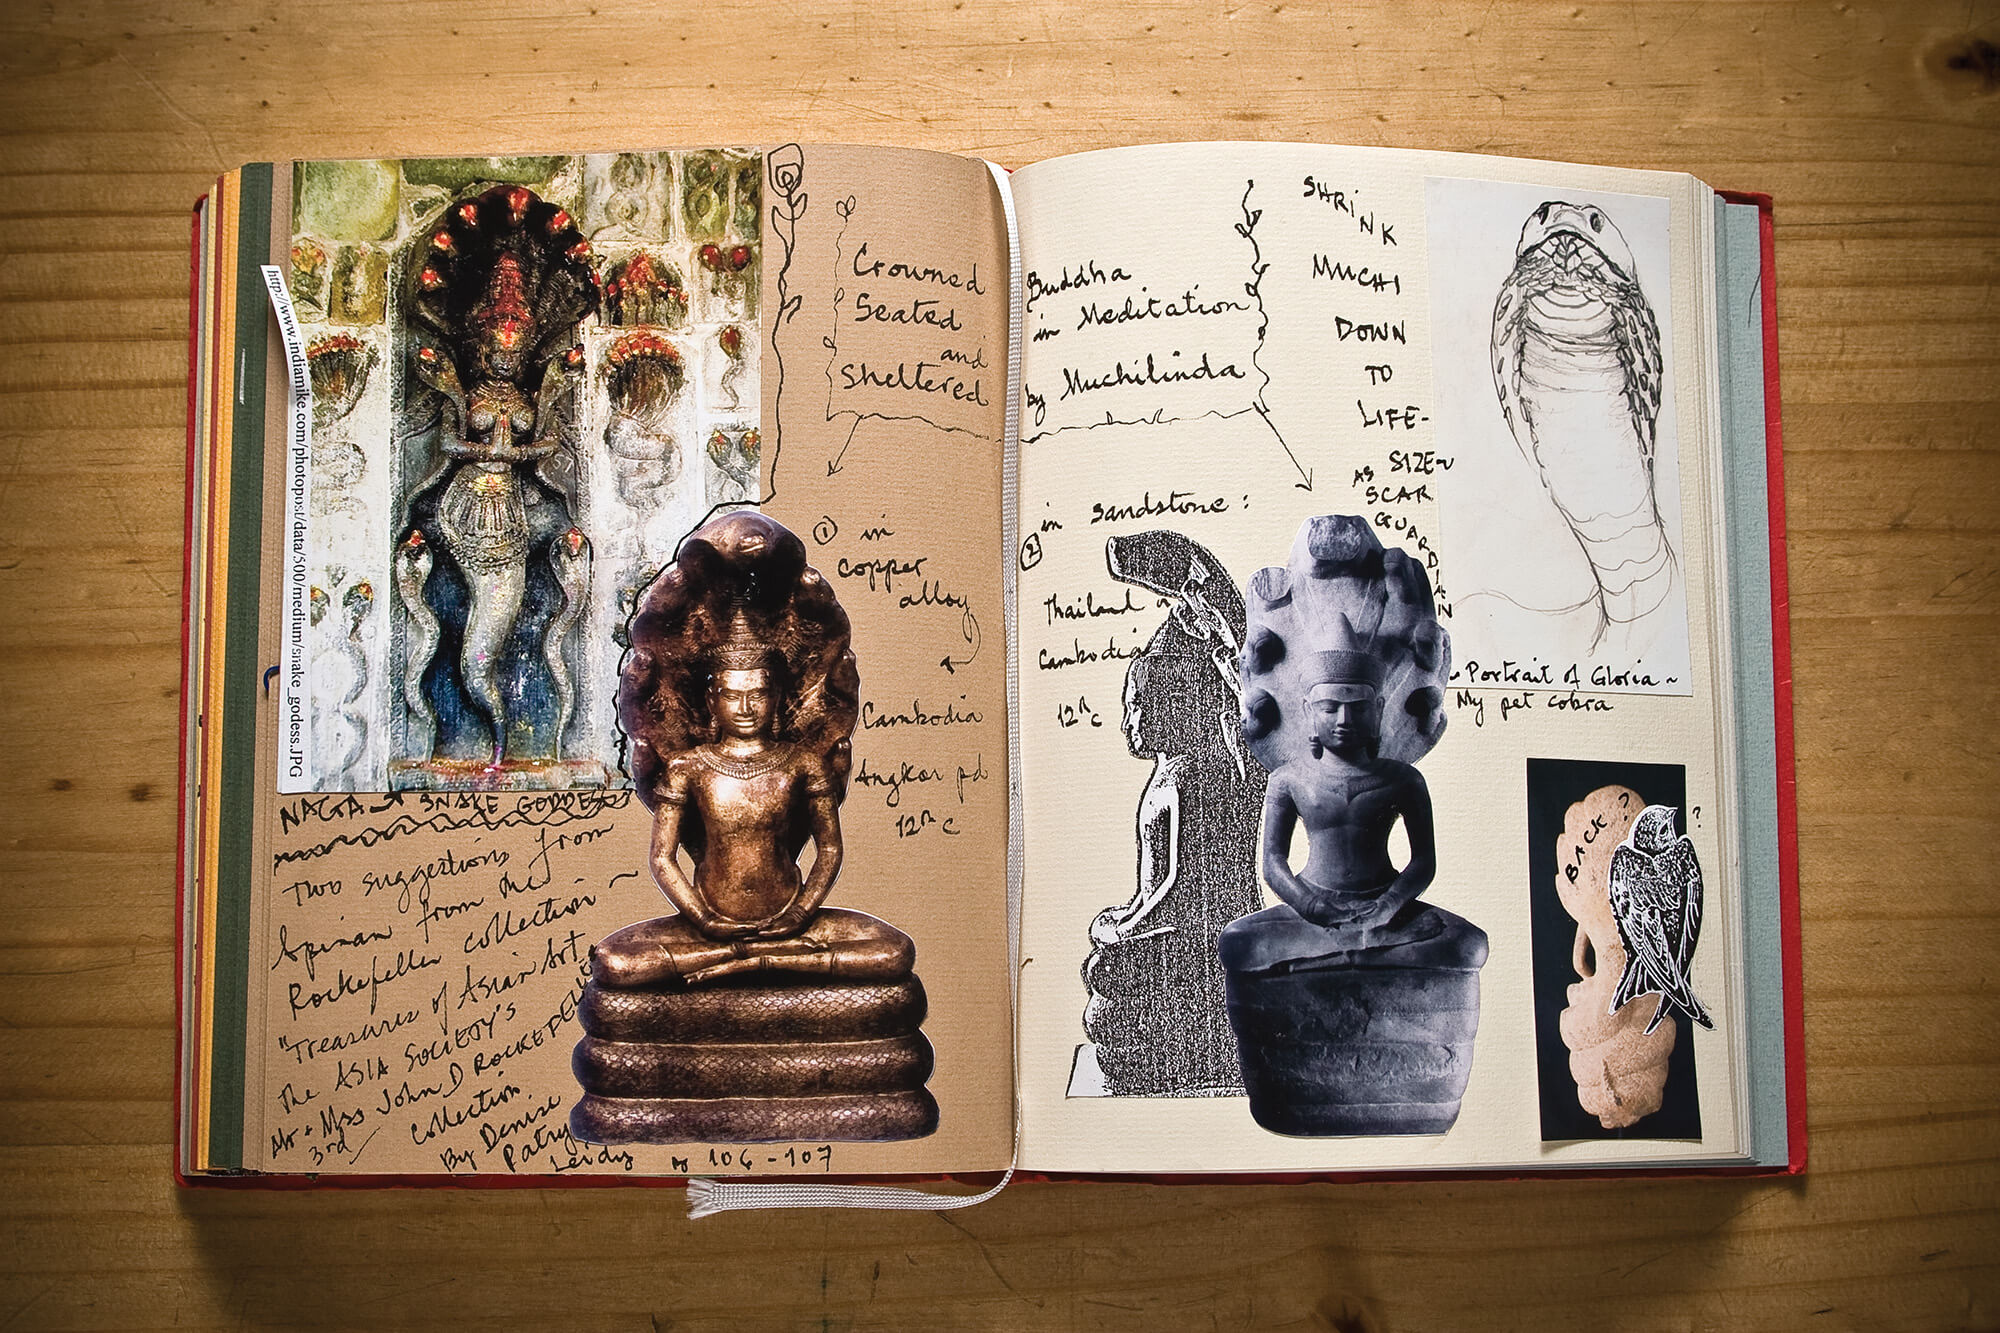 http://www.indiamike.com/photopost/data/500/medium/snake_godess.JPG
NAGA SNAKE GODDESS
Two suggestions from
from the
Rockefeller collection ~
"Treasures of Asian Art
the ASIA SOCIETY'S
Mr + Mrs John D ROCKEFELLER
3rd collection
By Denise
Patry
Leidy p 106 - 107
Crowned
Seated
and
Sheltered
① in
copper
alloy
Cambodia
Angkor pd
12th c
Buddha
in Meditation
by Muchilinda
in sandstone :
②
Thailand or
Cambodia
12th c
SHRINK
MUCHI
DOWN
TO
LIFE-
SIZE~
AS
SCAR
GUARDIAN
~ Portrait of Gloria ~
My pet cobra
BACK ? ?